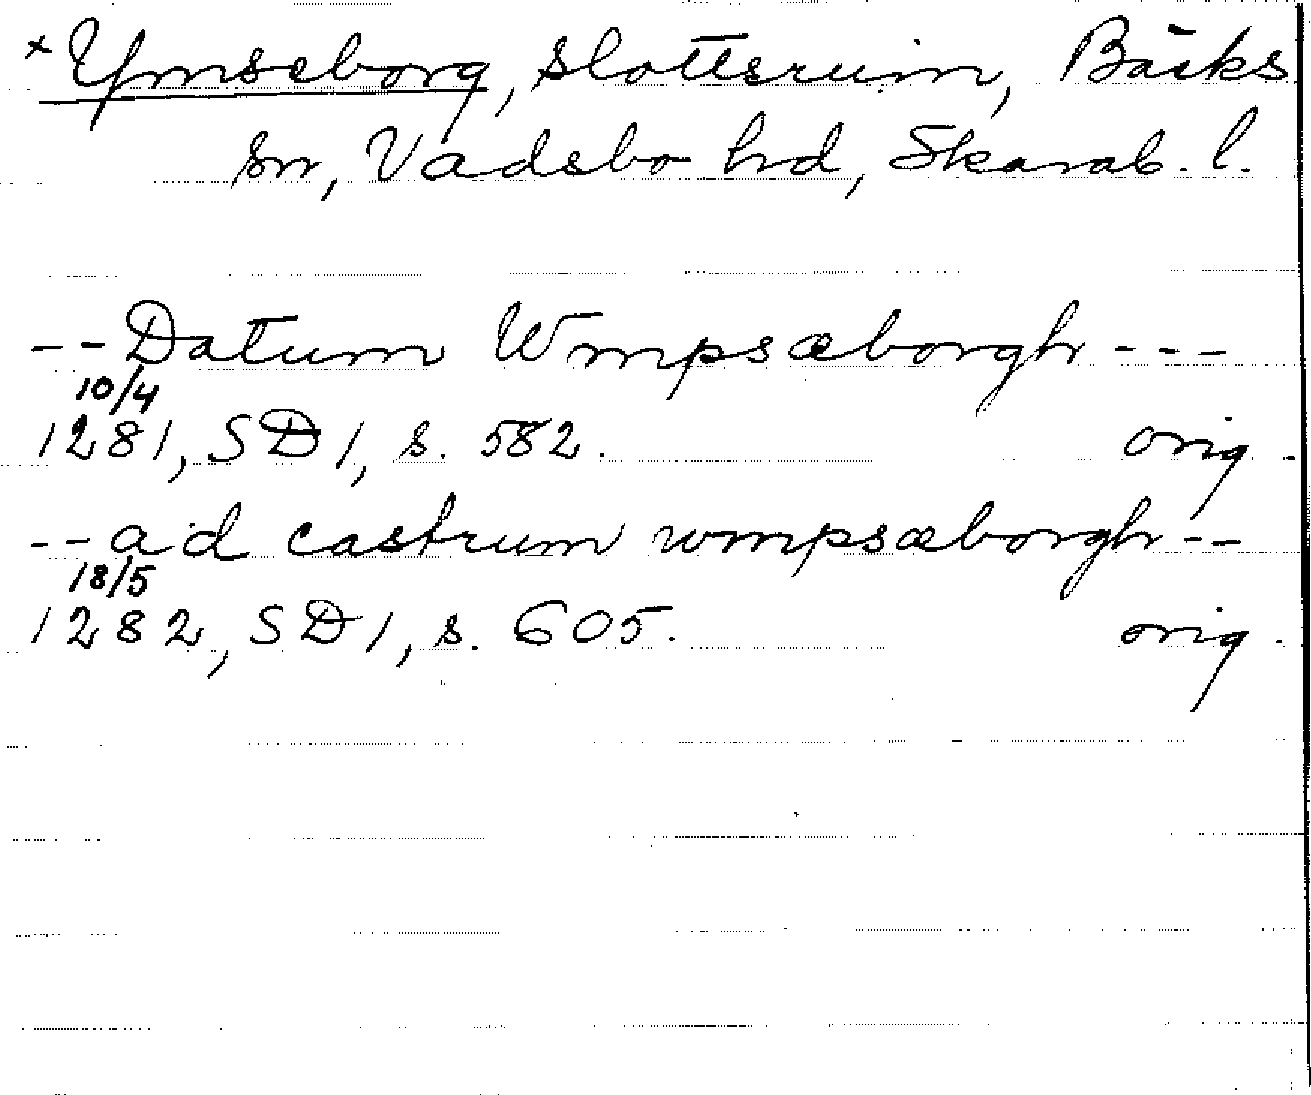 × Ymseborg, slottsruin, Bäcks
sn, Vadsbo hd, Skarab. l.
-- Datum Wmpsæborgh ---
10/4
1281, SD 1, s. 582. orig.
-- ad castrum wmpsæborgh --
18/5
1282, SD 1, s. 605. orig.